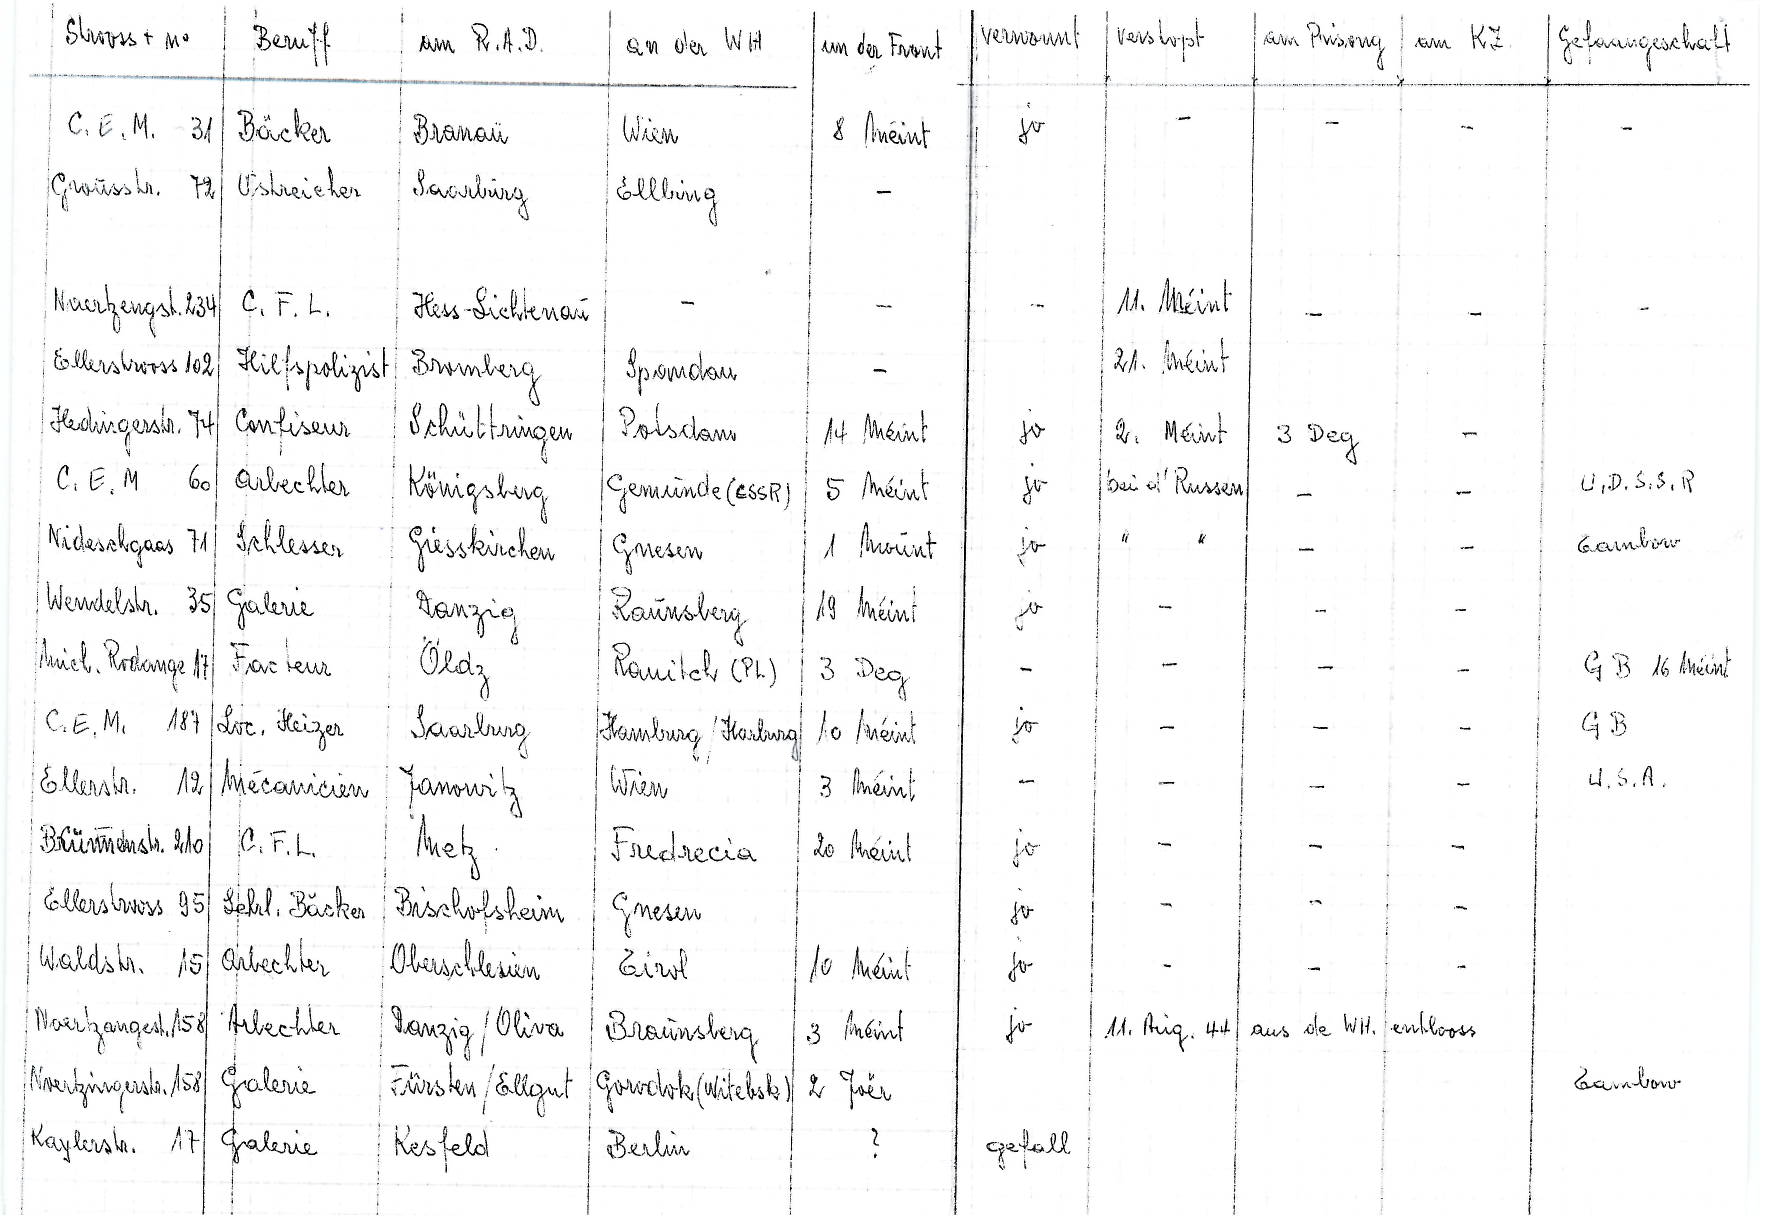 Strooss + No Beruff am R.A.D. an der WH un der Front verwonnt verstopt am Prisong am KZ Gefaangeschaft
C. E. M. 31 Bäcker Branaü Wien 8 Méint jo - - - -
Groüsstr. 72 Ustreicher Saarbürg Ellbing -
Noertzengst. 234 C. F. L. Hess-Lichtenaü - - - 11. Méint - - -
Ellerstrooss 102 Hilfspolizist Bromberg Spandau - 21. Méint
Hedingerstr. 74 Confiseur Schüttringen Potsdam 14 Méint jo 2. Méint 3 Deg -
C. E. M 60 Arbechter Königsberg Gemünde (CSSR) 5 Méint jo bei d'Russen - - U.D.S.S.R
Nideschgaas 71 Schlesser Giesskirchen Gnesen 1 Moünt jo " " - - Tambow
Wendelstr. 35 Galerie Danzig Raünsberg 19 Méint jo - - -
Mich. Rodange 17 Facteur Öldz Rauitch (PL) 3 Deg - - - - G B 16 Méint
C. E. M. 187 Loc. Heizer Saarburg Hamburg / Harburg 10 Méint jo - - - G B
Ellerstr. 12 Mécanicien Janowitz Wien 3 Méint - - - - U.S.A.
Brünnenstr. 210 C. F. L. Metz Fredrecia 20 Méint jo - - -
Ellerstrooss 95 Lehrl. Bäcker Bischofsheim Gnesen jo - - -
Waldstr. 15 Arbechter Oberschlesien Tirol 10 Méint jo - - -
Noertzangest. 158 Arbechter Danzig / Oliva Braünsberg 3 Méint jo 11. Aug. 44 aus de WH. entlooss
Noertzingerstr. 158 Galerie Fürsten / Ellgut Gorodok (Witebsk) 2 Joër Tambow
Kaylerstr. 17 Galerie Kesfeld Berlin ? gefall